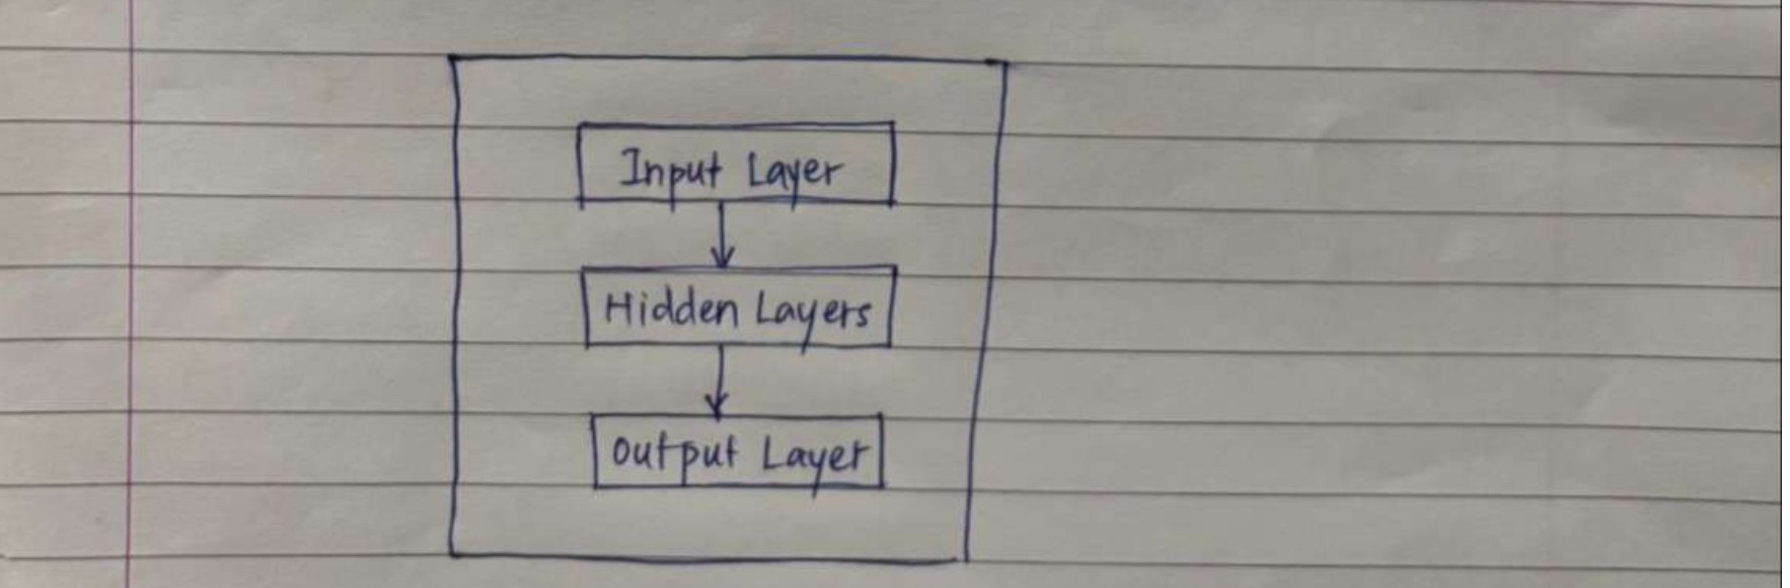 Input Layer
Hidden Layers
Output Layer